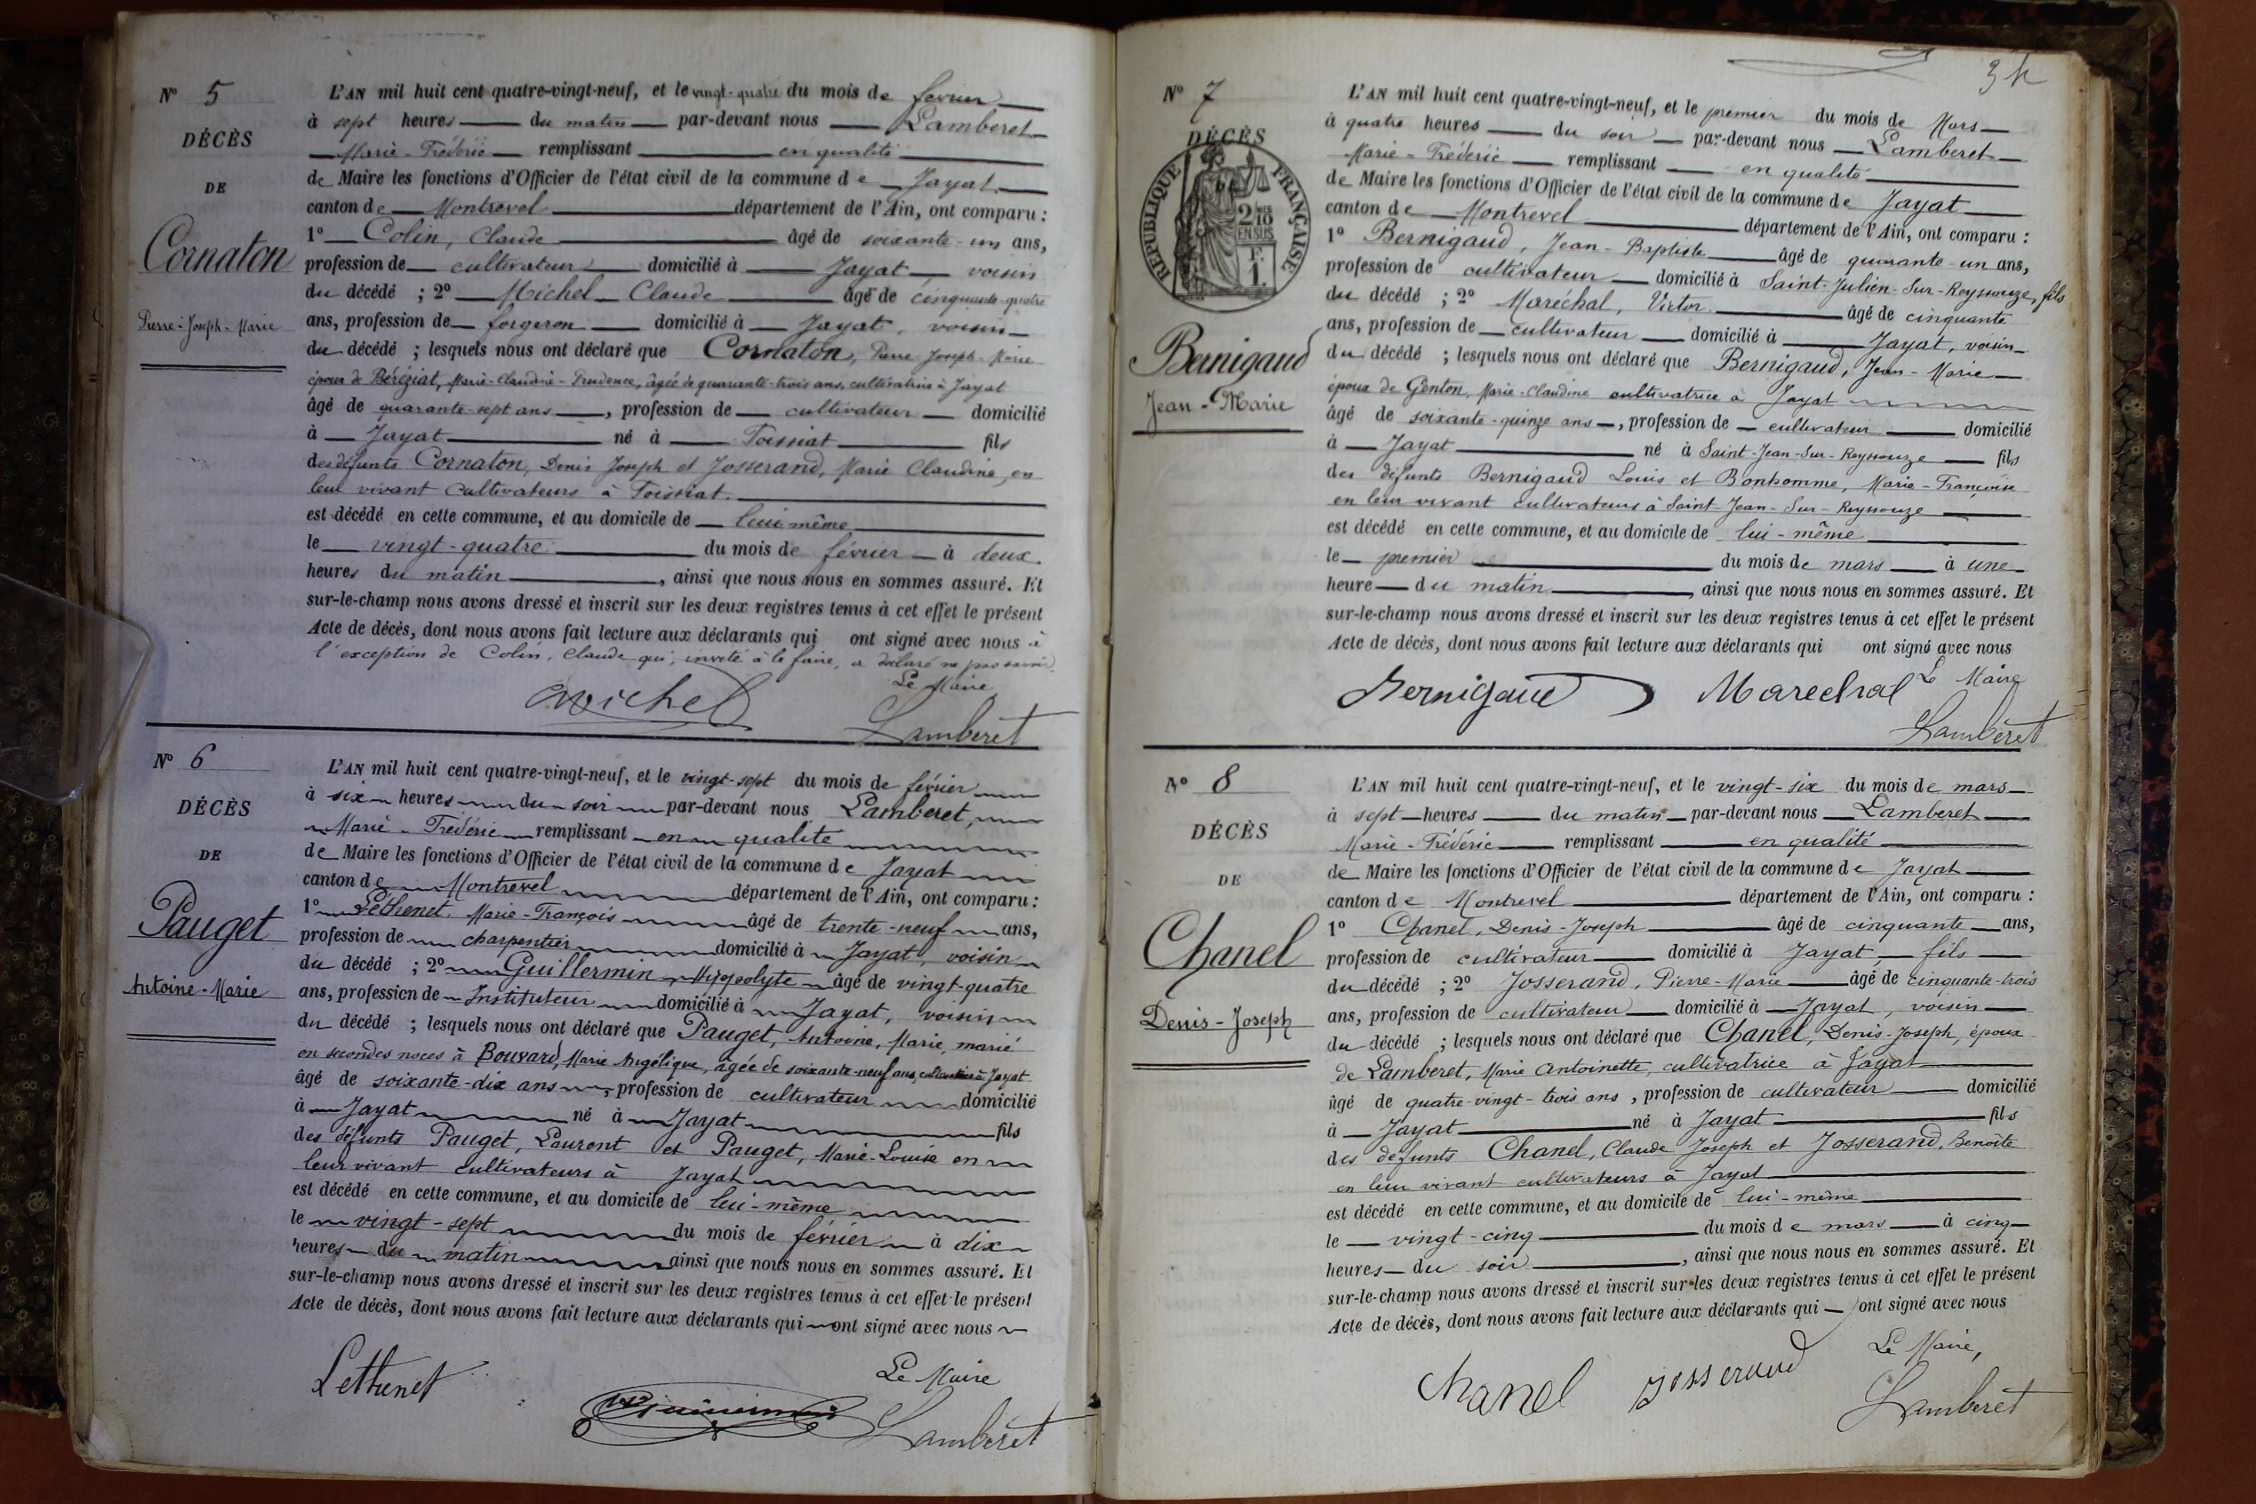 Nº 5
DÉCÈS
DE
Cornaton
Pierre-Joseph-Marie
L'AN mil huit cent quatre-vingt-neuf, et le vingt-quatre du mois de février
à sept heures du matin par-devant nous Lamberet
Marie-Fréderic remplissant en qualité
de Maire les fonctions d'Officier de l'état civil de la commune de Jayat
canton de Montrevel département de l'Ain, ont comparu :
1º Colin, Claude âgé de soixante-un ans,
profession de cultivateur domicilié à Jayat, voisin
du décédé ; 2º Michel Claude âgé de cinquante-quatre
ans, profession de forgeron domicilié à Jayat, voisin
du décédé ; lesquels nous ont déclaré que Cornaton, Pierre Joseph-Marie
époux de Béréziat, Marie-Claudine-Prudence, âgée de quarante-trois ans, cultivatrice à Jayat
âgé de quarante-sept ans, profession de cultivateur domicilié
à Jayat né à Foissiat fils
des défunts Cornaton, Denis Joseph et Josserand, Marie Claudine, en
leur vivant cultivateurs à Foissiat.
est décédé en cette commune, et au domicile de lui même
le vingt-quatre du mois de février à deux
heures du matin, ainsi que nous nous en sommes assuré. Et
sur-le-champ nous avons dressé et inscrit sur les deux registres tenus à cet effet le présent
Acte de décès, dont nous avons fait lecture aux déclarants qui ont signé avec nous à
l'exception de Colin, Claude qui, invité à le faire, a déclaré ne pas savoir.
Le Maire
Michel
Lamberet
Nº 6
DÉCÈS
DE
Pauget
Antoine-Marie
L'AN mil huit cent quatre-vingt-neuf, et le vingt-sept du mois de février
à six heures du soir par-devant nous Lamberet,
Marie-Fréderic remplissant en qualité
de Maire les fonctions d'Officier de l'état civil de la commune de Jayat
canton de Montrevel département de l'Ain, ont comparu :
1º Léthenet Marie-François âgé de trente-neuf ans,
profession de charpentier domicilié à Jayat, voisin
du décédé ; 2º Guillermin Hyppolyte âgé de vingt-quatre
ans, profession de Instituteur domicilié à Jayat, voisin
du décédé ; lesquels nous ont déclaré que Pauget, Antoine, Marie, marié
en secondes noces à Bouvard, Marie Angélique, agée de soixante-neuf ans, cultivatrice à Jayat
âgé de soixante-dix ans, profession de cultivateur domicilié
à Jayat né à Jayat fils
des défunts Pauget, Laurent et Pauget, Marie-Louise en
leur vivant cultivateurs à Jayat
est décédé en cette commune, et au domicile de lui-même
le vingt-sept du mois de février à dix
heures du matin ainsi que nous nous en sommes assuré. Et
sur-le-champ nous avons dressé et inscrit sur les deux registres tenus à cet effet le présent
Acte de décès, dont nous avons fait lecture aux déclarants qui ont signé avec nous
Le Maire
Lethenet
Lamberet
34
Nº 7
DÉCÈS
RÉPUBLIQUE FRANÇAISE
2/10 EN SUS
F. 1.
Bernigaud
Jean-Marie
L'AN mil huit cent quatre-vingt-neuf, et le premier du mois de Mars
à quatre heures du soir par-devant nous Lamberet
Marie-Fréderic remplissant en qualité
de Maire les fonctions d'Officier de l'état civil de la commune de Jayat
canton de Montrevel département de l'Ain, ont comparu :
1º Bernigaud, Jean-Baptiste âgé de quarante-un ans,
profession de cultivateur domicilié à Saint-Julien-Sur-Reyssouze, fils
du décédé ; 2º Maréchal, Victor âgé de cinquante
ans, profession de cultivateur domicilié à Jayat, voisin
du décédé ; lesquels nous ont déclaré que Bernigaud, Jean-Marie
époux de Genton, Marie-Claudine cultivatrice à Jayat
âgé de soixante-quinze ans, profession de cultivateur domicilié
à Jayat né à Saint-Jean-Sur-Reyssouze fils
des défunts Bernigaud Louis et Bonhomme, Marie-Françoise
en leur vivant cultivateurs à Saint-Jean-Sur-Reyssouze
est décédé en cette commune, et au domicile de lui-même
le premier du mois de mars à une
heure du matin, ainsi que nous nous en sommes assuré. Et
sur-le-champ nous avons dressé et inscrit sur les deux registres tenus à cet effet le présent
Acte de décès, dont nous avons fait lecture aux déclarants qui ont signé avec nous
Le Maire
Bernigaud Marechal
Lamberet
Nº 8
DÉCÈS
DE
Chanel
Denis-Joseph
L'AN mil huit cent quatre-vingt-neuf, et le vingt-six du mois de mars
à sept heures du matin par-devant nous Lamberet
Marie-Fréderic remplissant en qualité
de Maire les fonctions d'Officier de l'état civil de la commune de Jayat
canton de Montrevel département de l'Ain, ont comparu :
1º Chanel, Denis-Joseph âgé de cinquante ans,
profession de cultivateur domicilié à Jayat, fils
du décédé ; 2º Josserand, Pierre-Marie âgé de cinquante-trois
ans, profession de cultivateur domicilié à Jayat, voisin
du décédé ; lesquels nous ont déclaré que Chanel, Denis-Joseph, époux
de Lamberet, Marie Antoinette, cultivatrice à Jayat
âgé de quatre-vingt-trois ans, profession de cultivateur domicilié
à Jayat né à Jayat fils
des défunts Chanel, Claude Joseph et Josserand, Benoîte
en leur vivant cultivateurs à Jayat
est décédé en cette commune, et au domicile de lui-même
le vingt-cinq du mois de mars à cinq
heures du soir, ainsi que nous nous en sommes assuré. Et
sur-le-champ nous avons dressé et inscrit sur les deux registres tenus à cet effet le présent
Acte de décès, dont nous avons fait lecture aux déclarants qui ont signé avec nous
Le Maire,
Chanel Josserand
Lamberet